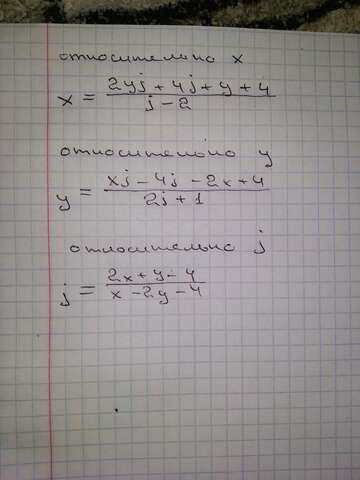 относительно x
x = (2yj + 4j + y + 4)/(j - 2)
относительно y
y = (xj - 4j - 2x + 4)/(2j + 1)
относительно j
j = (2x + y - 4)/(x - 2y - 4)